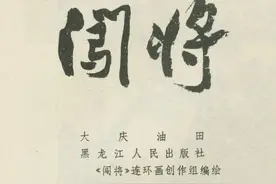 闯将
大庆油田
黑龙江人民出版社
《闯将》连环画创作组编绘